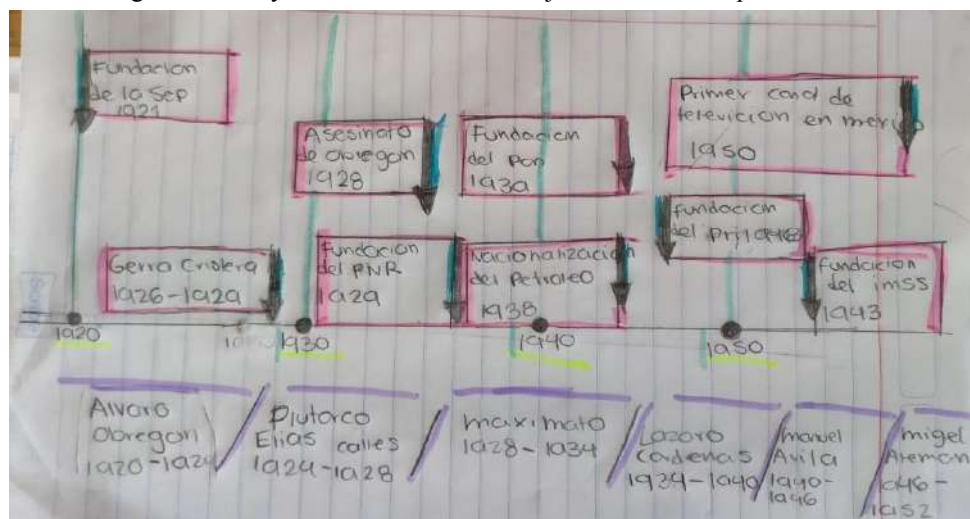 Fundacion
de la Sep
1921
Asesinato
de obregon
1928
Fundacion
del Pan
1939
Primer canal de
televicion en mexico
1950
Fundacion
del Pri
Gerra Cristera
1926-1929
Fundacion
del PNR
1929
Nacionalización
del Petroleo
1938
Fundacion
del imss
1943
1920
1930
1940
1950
Alvaro
Obregon
1920-1924
Plutarco
Elias calles
1924-1928
maximato
1928-1934
Lazaro
Cadenas
1934-1940
manuel
Avila
1940-
1946
migel
Aleman
1946-
1952